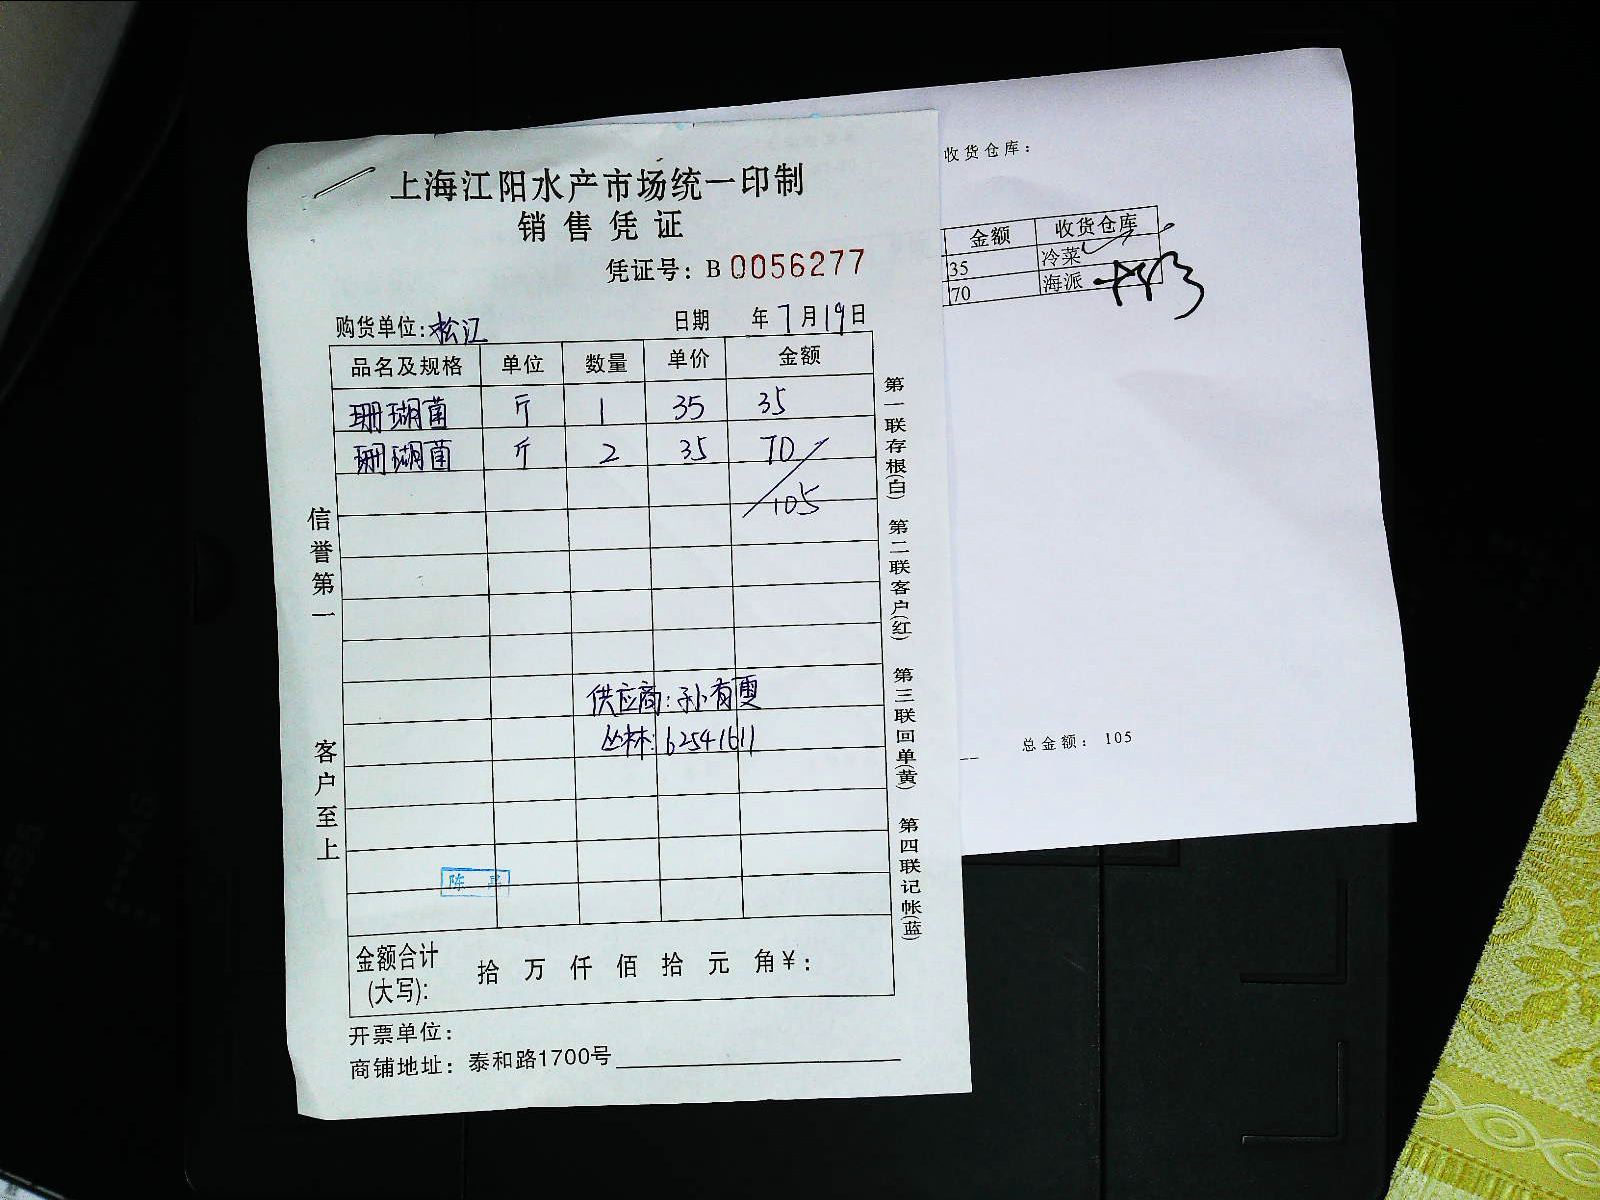 上海江阳水产市场统一印制
销售凭证
凭证号：B 0056277
购货单位:松江 日期 年7月19日
品名及规格 单位 数量 单价 金额
珊瑚菌 斤 1 35 35
珊瑚菌 斤 2 35 70
105
供应商:孙有更
丛林:62541611
陈
金额合计(大写): 拾 万 仟 佰 拾 元 角￥:
开票单位:
商铺地址: 泰和路1700号
信誉第一
客户至上
第一联存根(白) 第二联客户(红) 第三联回单(黄) 第四联记帐(蓝)
收货仓库:
金额 收货仓库
35 冷菜
70 海派
总金额: 105